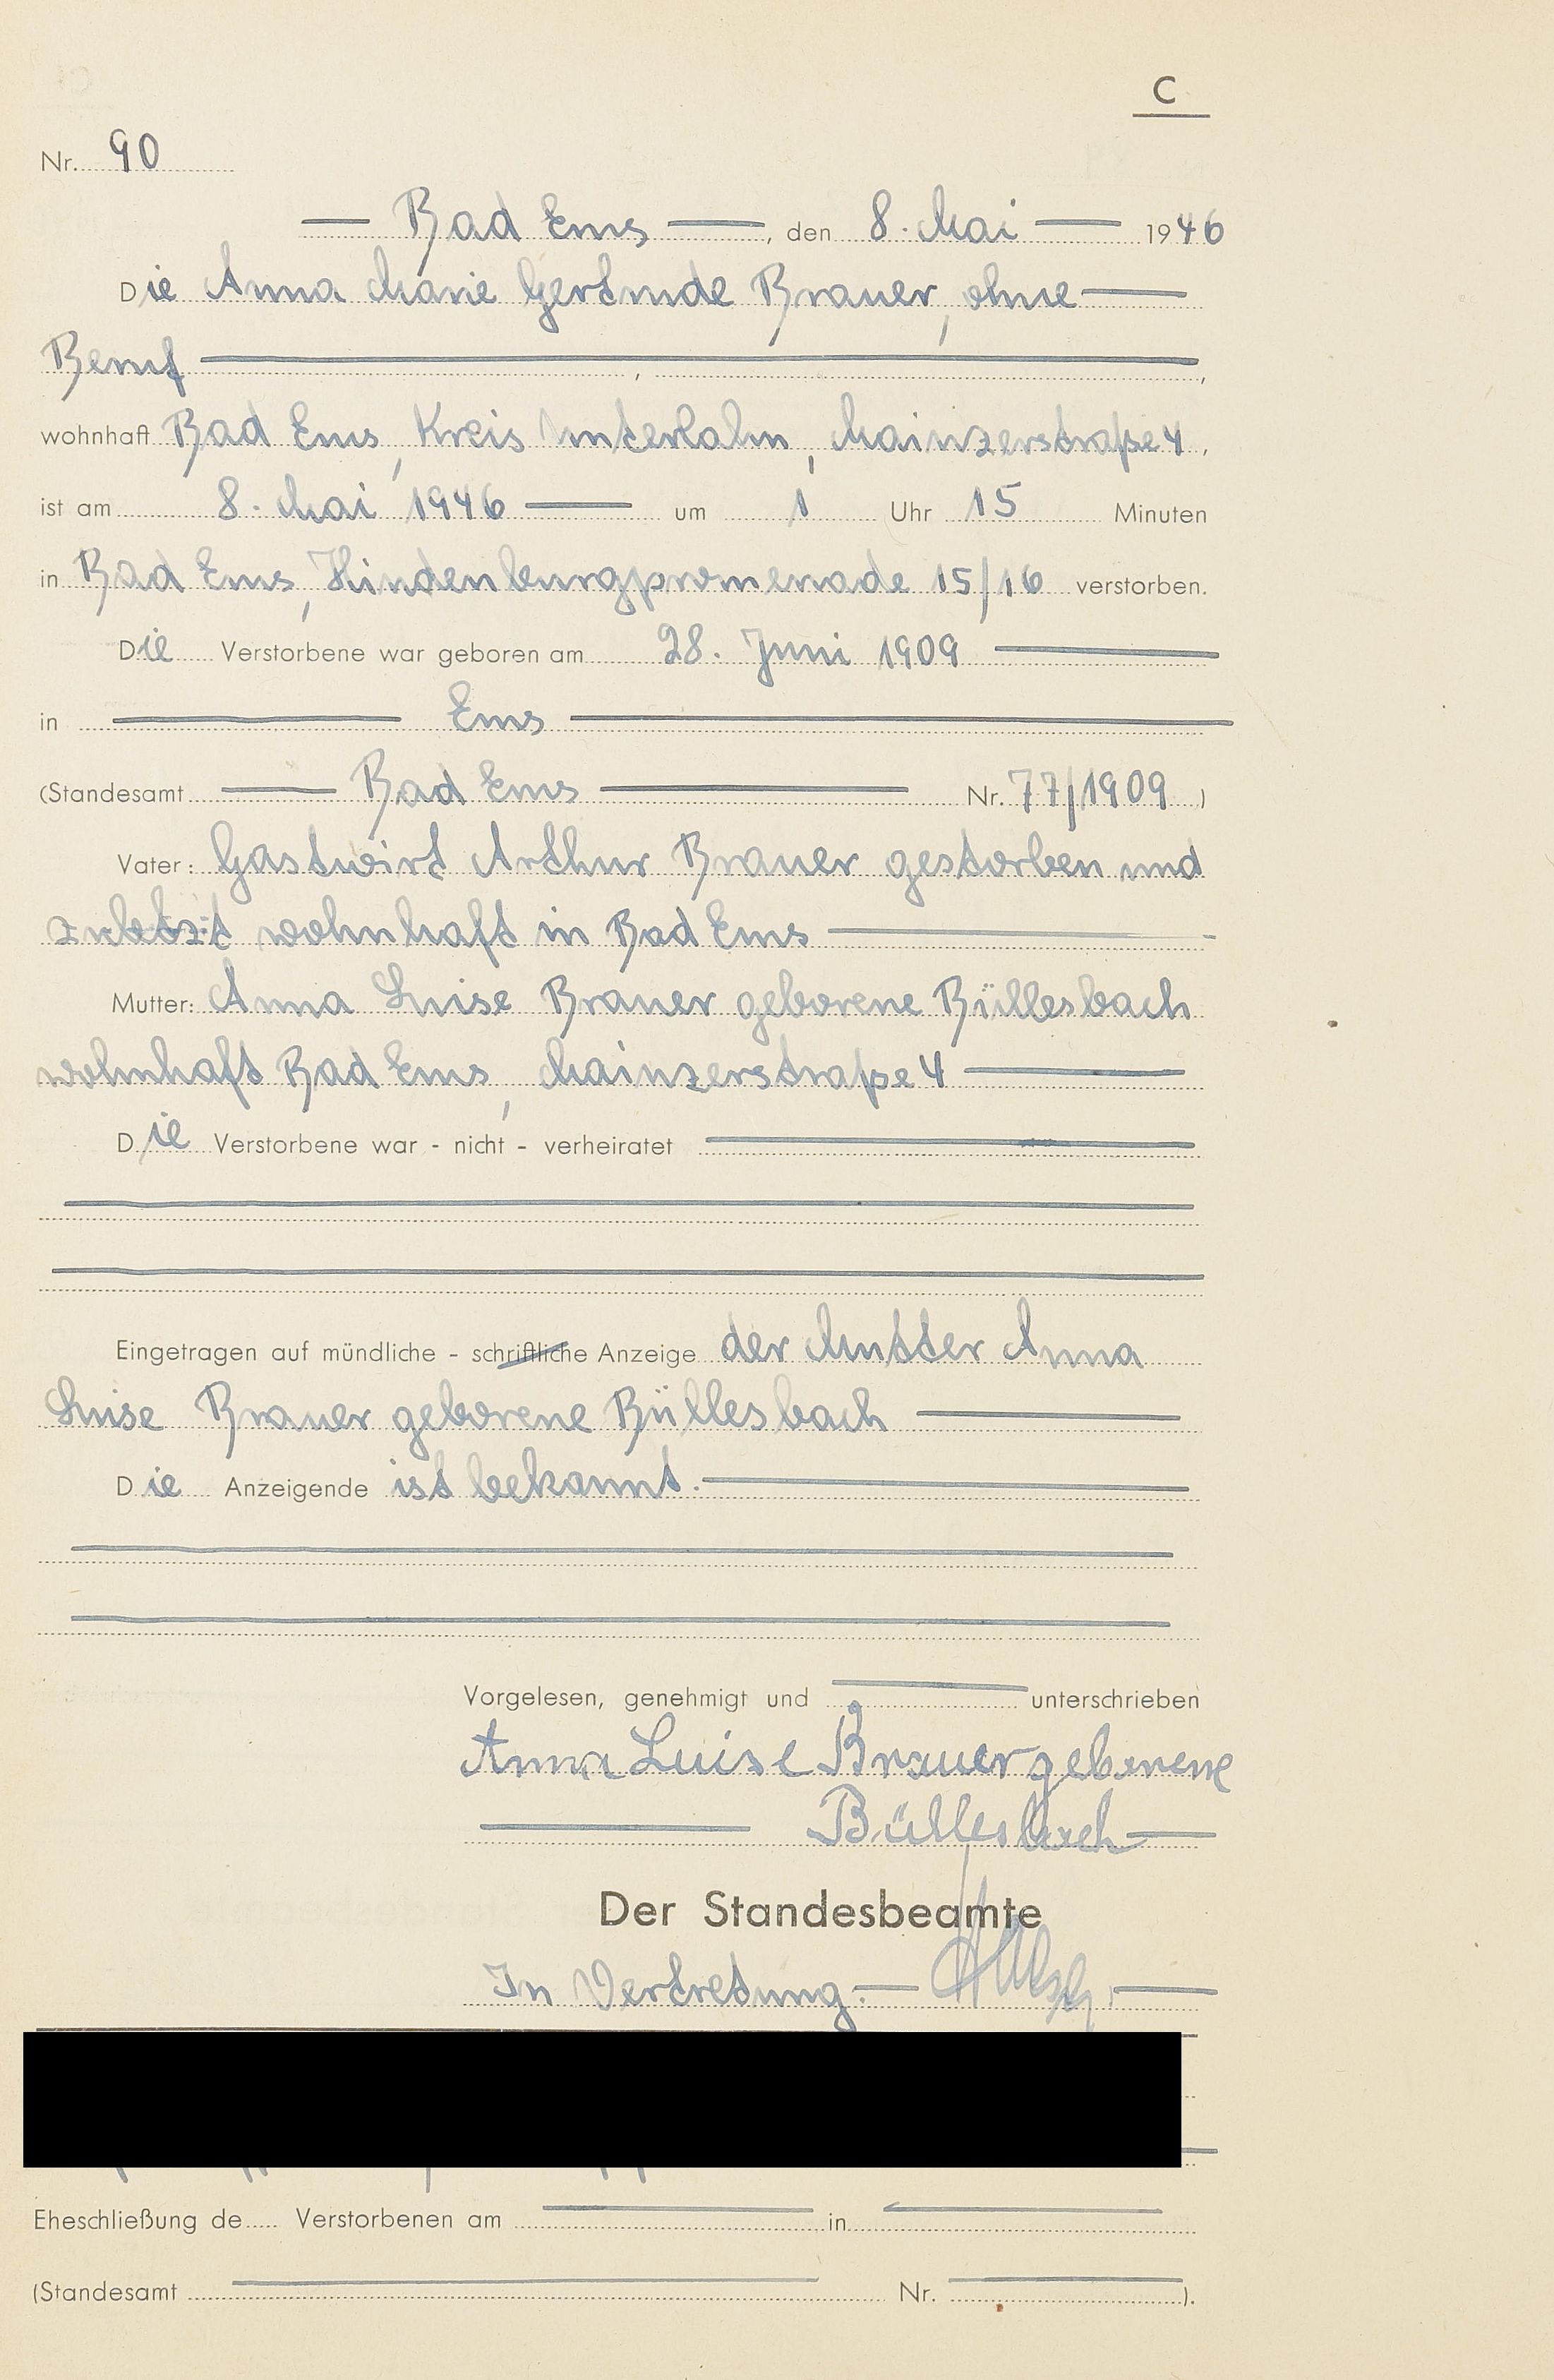 C
Nr. 90
Bad Ems, den 8. Mai 1946
Die Anna Marie Gertrude Brauer, ohne
Beruf
wohnhaft Bad Ems, Kreis Unterlahn, Mainzerstraße 4,
ist am 8. Mai 1946 um 1 Uhr 15 Minuten
in Bad Ems, Hindenburgpromenade 15/16 verstorben.
Die Verstorbene war geboren am 28. Juni 1909
in Ems
(Standesamt Bad Ems Nr. 77/1909)
Vater: Gastwirt Arthur Brauer gestorben und
zuletzt wohnhaft in Bad Ems
Mutter: Anna Luise Brauer geborene Büllesbach
wohnhaft Bad Ems, Mainzerstraße 4
Die Verstorbene war - nicht - verheiratet
Eingetragen auf mündliche - schriftliche Anzeige der Mutter Anna
Luise Brauer geborene Büllesbach
Die Anzeigende ist bekannt.
Vorgelesen, genehmigt und unterschrieben
Anna Luise Brauer geborene
Büllesbach
Der Standesbeamte
In Vertretung:
Eheschließung de Verstorbenen am in
(Standesamt Nr. ).